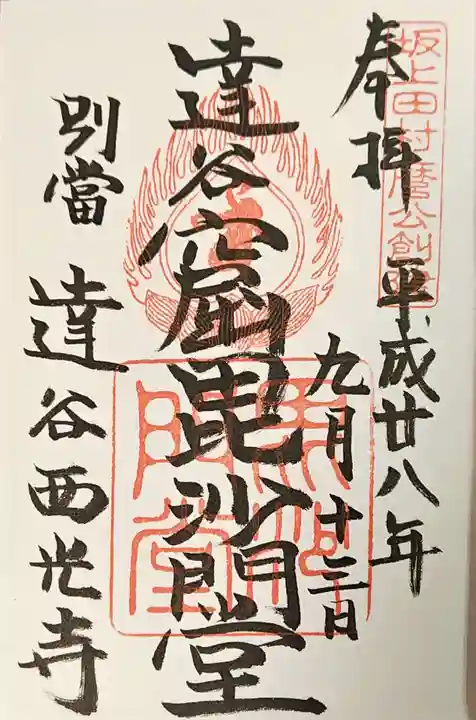 坂上田村麿公創建
奉拝
平成廿八年
九月十三日
達谷窟毘沙門堂
別當
達谷西光寺